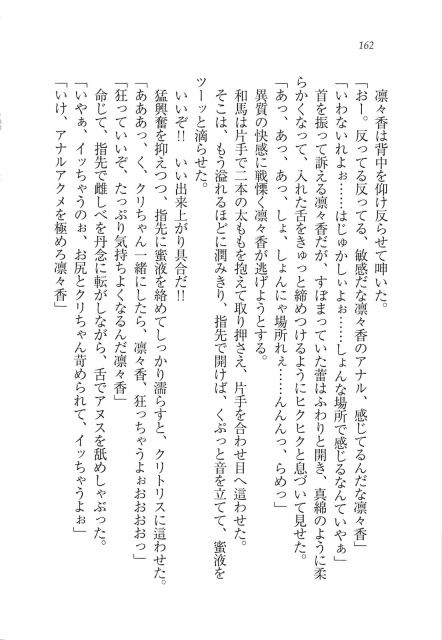 162
凛々香は背中を仰け反らせて呻いた。
「おー。反ってる反ってる、敏感だな凛々香のアナル、感じてるんだな凛々香」
「いわないれよぉ……はじゅかしぃよぉ……しょんな場所で感じるなんていやぁ」
首を振って訴える凛々香だが、すぼまっていた蕾はふわりと開き、真綿のように柔
らかくなって、入れた舌をきゅっと締めつけるようにヒクヒクと息づいて見せた。
「あっ、あっ、あっ、しょ、しょんにゃ場所れぇ……んんんっ、らめっ」
異質の快感に戦慄く凛々香が逃げようとする。
和馬は片手で二本の太ももを抱えて取り押さえ、片手を合わせ目へ這わせた。
そこは、もう溢れるほどに潤みきり、指先で開けば、くぷっと音を立てて、蜜液を
ツーッと滴らせた。
いいぞ!! いい出来上がり具合だ!!
猛興奮を抑えつつ、指先に蜜液を絡めてしっかり濡らすと、クリトリスに這わせた。
「あああっ、く、クリちゃん一緒にしたら、凛々香、狂っちゃうよぉおおおおっ」
「狂っていいぞ、たっぷり気持ちよくなるんだ凛々香」
命じて、指先で雌しべを丹念に転がしながら、舌でアヌスを舐めしゃぶった。
「いやぁ、イッちゃうのぉ、お尻とクリちゃん苛められて、イッちゃうよぉ」
「いけ、アナルアクメを極めろ凛々香」